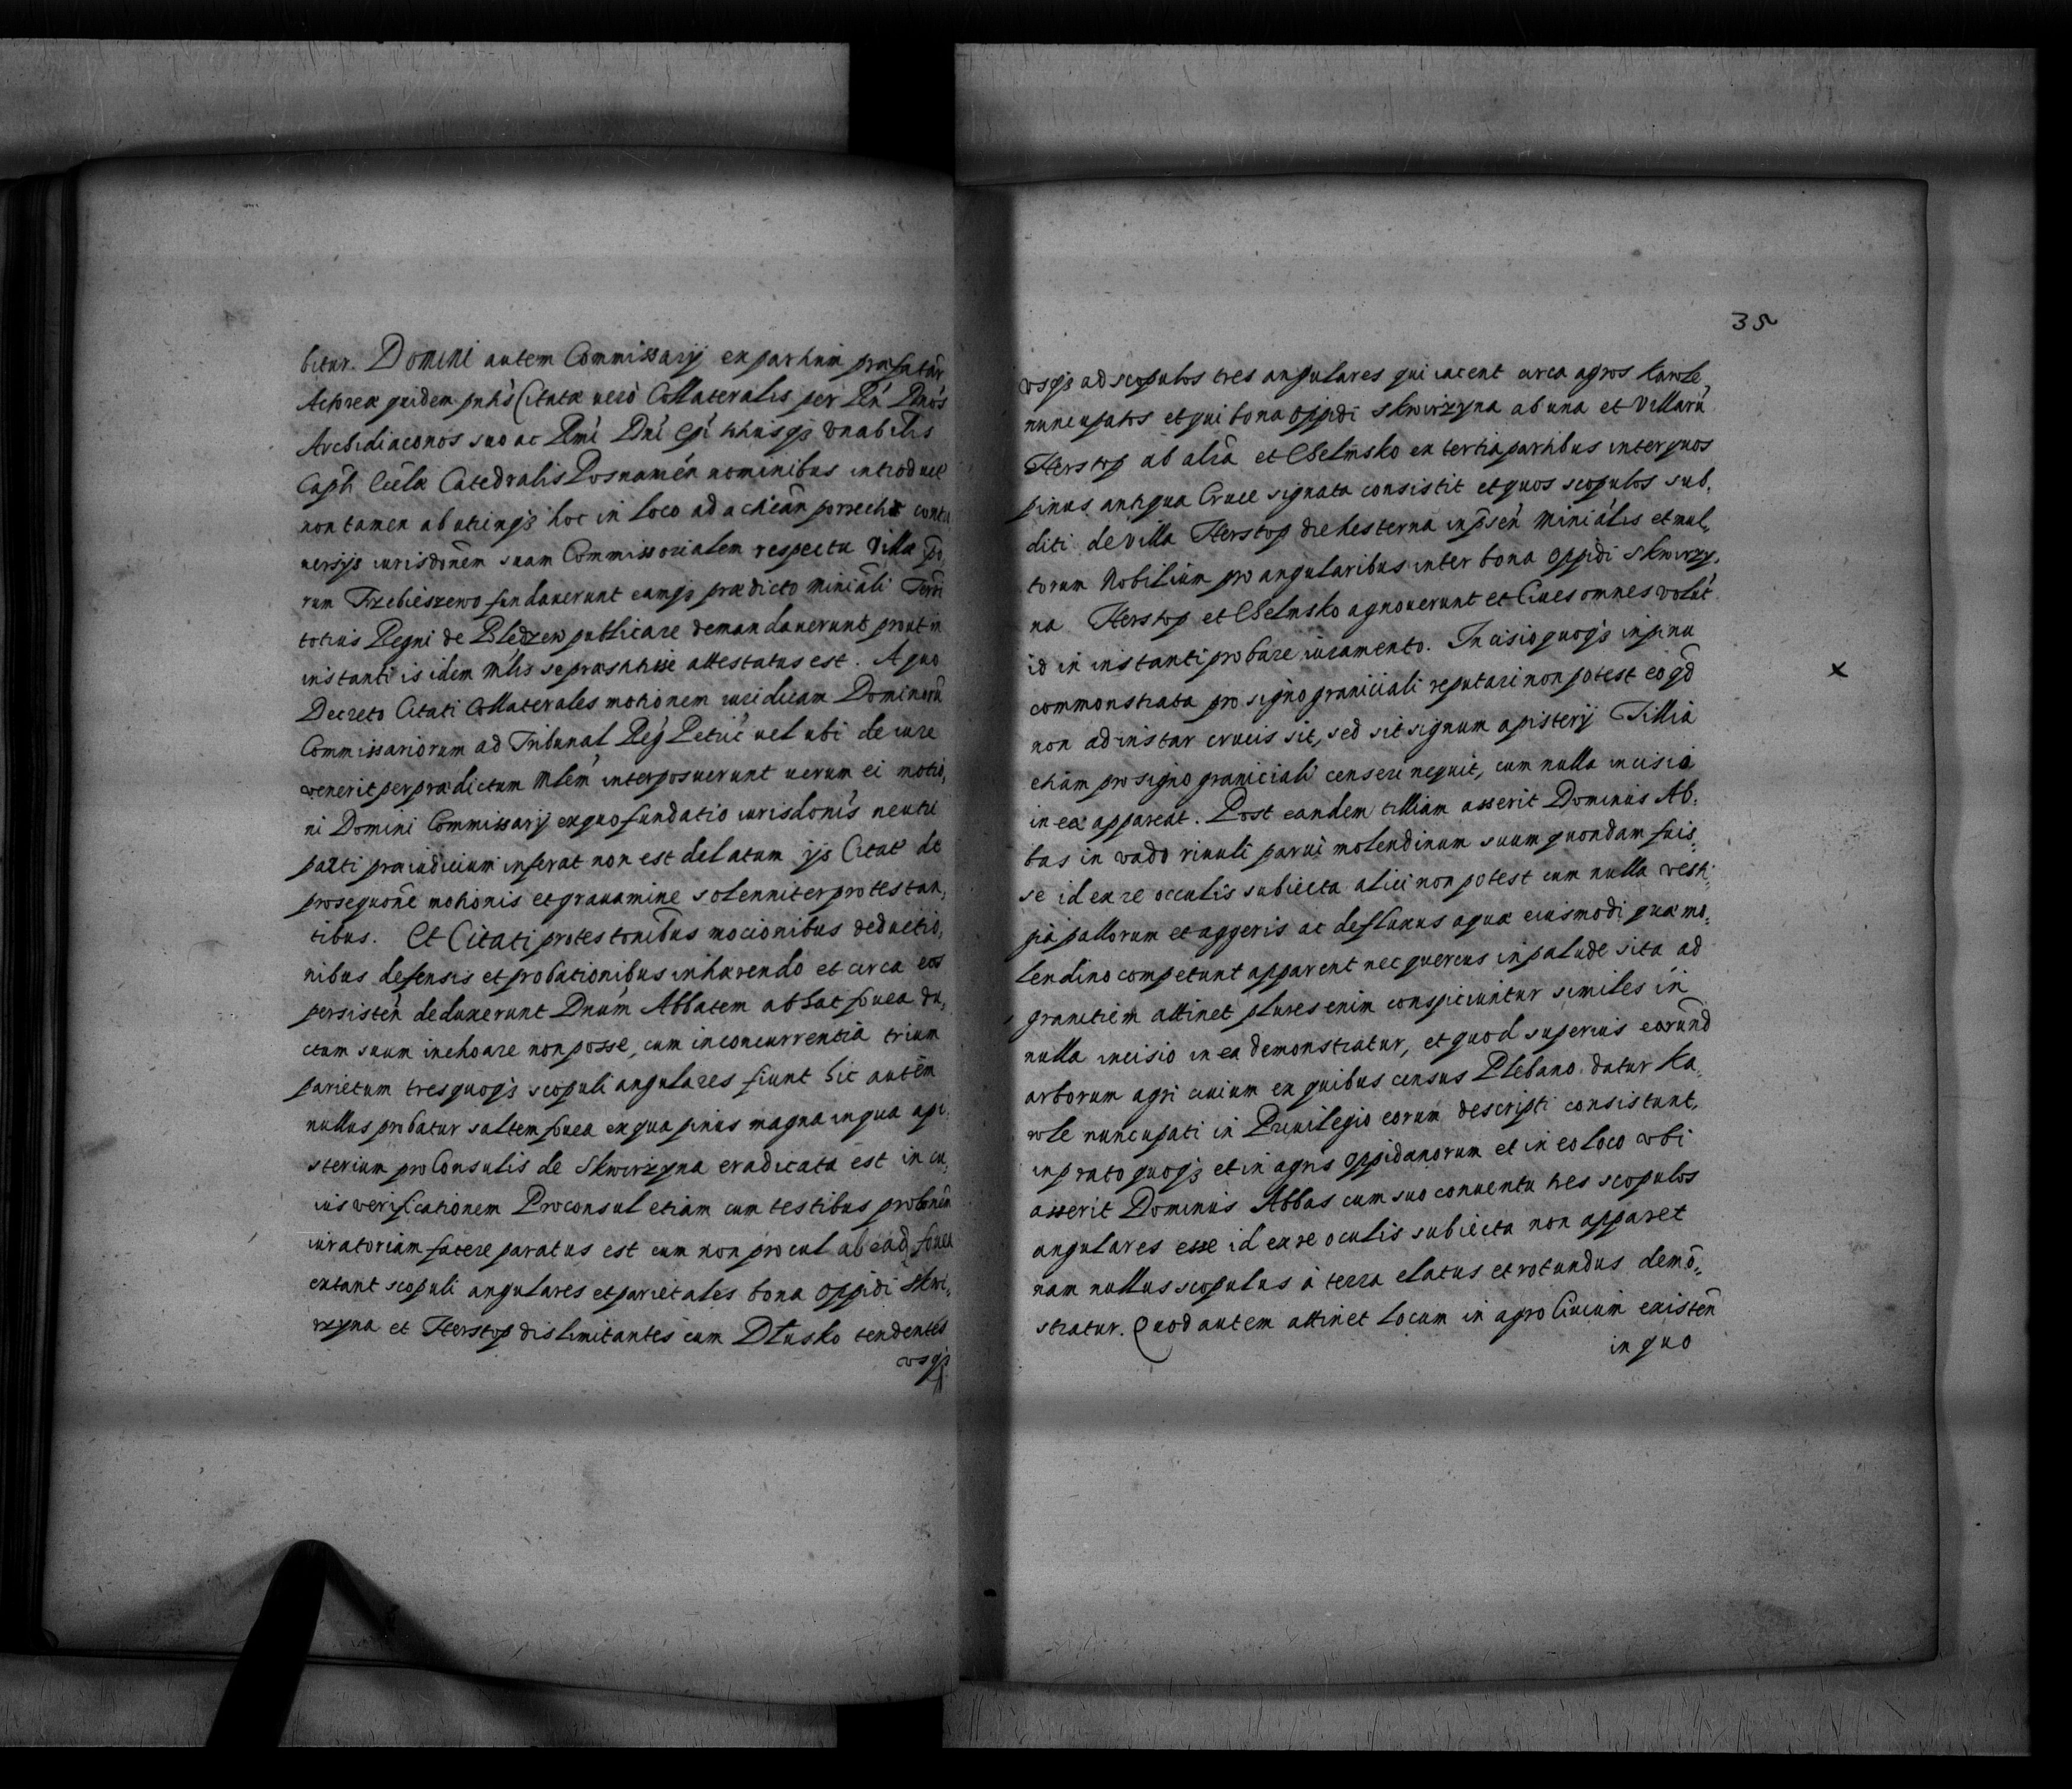 bitur. Domini autem Commissarij ex partium præfatar
Actorea quidem pntis Citatæ uero Collateralis per Rn Dnos
Archidiaconos suo ac Rmi Dni Epi totiusqs Vnabilis
Capli Cclæ Catedralis Posnamen nominibus introduct
non tamen ab utrinqs hoc in loco ad actican porrectis contr
uersijs iurisdonem suam Commissorialem respectu Villa
rum Trzebieszewo fundauerunt eamqs prædicto Miniali Terri
totius Regni de Bledzew publicare demandauerunt prout in
instanti is idem Mlis se præsatisse attestatus est. A quo
Decreto Citati Collaterales motionem iuridicam Dominoru
Commissariorum ad Tribunal Reg Petric uel ubi de iure
venerit per prædictum Mlem interposuerunt uerum ei motio,
ni Domini Commissarij ex quo fundatio iurisdonis neutri
parti præiudicium inferat non est delatum ijs Citat de
prosequone motionis et grauamine solenniter protestan,
tibus. Et Citati protestonibus mocionibus deductio,
nibus defensis et probationibus inhærendo et circa eos
persisten deduxerunt Dnum Abbatem ab hac fouea du,
ctum suum inchoare non posse, cum in concurrentia trium
parietum tres quoqs scopuli angulares fiunt hic autem
nullus probatur saltem fouea ex qua pinus magna in qua api,
sterium proConsulis de Skwirzyna eradicata est in cu,
ius verificationem Proconsul etiam cum testibus probonem
iuratoriam facere paratus est cum non procul ab ead fouea
extant scopuli angulares et parietales bona oppidi Skwi,
rzyna et Herstop dislimitantes cum Dłusko tendentes
vsqs
35
vsqs ad scopulos tres angulares qui iacent circa agros Kawle,
nuncupatos et qui bona oppidi Skwirzyna ab una et Villaru
Herstop ab alia et Chelmsko ex tertia partibus inter quos
pinus antiqua Cruce signata consistit et quos scopulos sub,
diti de villa Herstop die hesterna in psen Minialis et mul,
torum Nobilium pro angularibus inter bona oppidi Skwirzy,
na Herstop et Chelmsko agnouerunt et Ciues omnes volut
id in instanti probare iuramento. Incisio quoqs in pinu
commonstrata pro signo graniciali reputari non potest eo qd
x
non ad instar crucis sit, sed sit signum apisterij Tillia
etiam pro signo graniciali censeri nequit, cum nulla incisio
in ea appareat. Post eandem tilliam asserit Dominus Ab,
bas in vado riuuli parui molendinum suum quondam fuis,
se id ex re occulis subiecta alici non potest cum nulla vesti,
gia pallorum et aggeris ac defluxus aquæ eiusmodi quæ mo,
lendino competunt apparent nec quercus in palude sita ad
granitiem attinet plures enim conspiciuntur similes in
nulla incisio in ea demonstratur, et quod superius eorund
arborum agri ciuium ex quibus census Plebano datur Ka,
wle nuncupati in Priuilegio eorum descripti consistunt,
in prato quoqs et in agris oppidanorum et in eo loco vbi
asserit Dominus Abbas cum suo conuentu tres scopulos
angulares esse id ex re oculis subiecta non apparet
nam nullus scopulus à terra elatus et rotundus demo,
stratur. Quod autem attinet locum in agro Ciuium existen
in quo